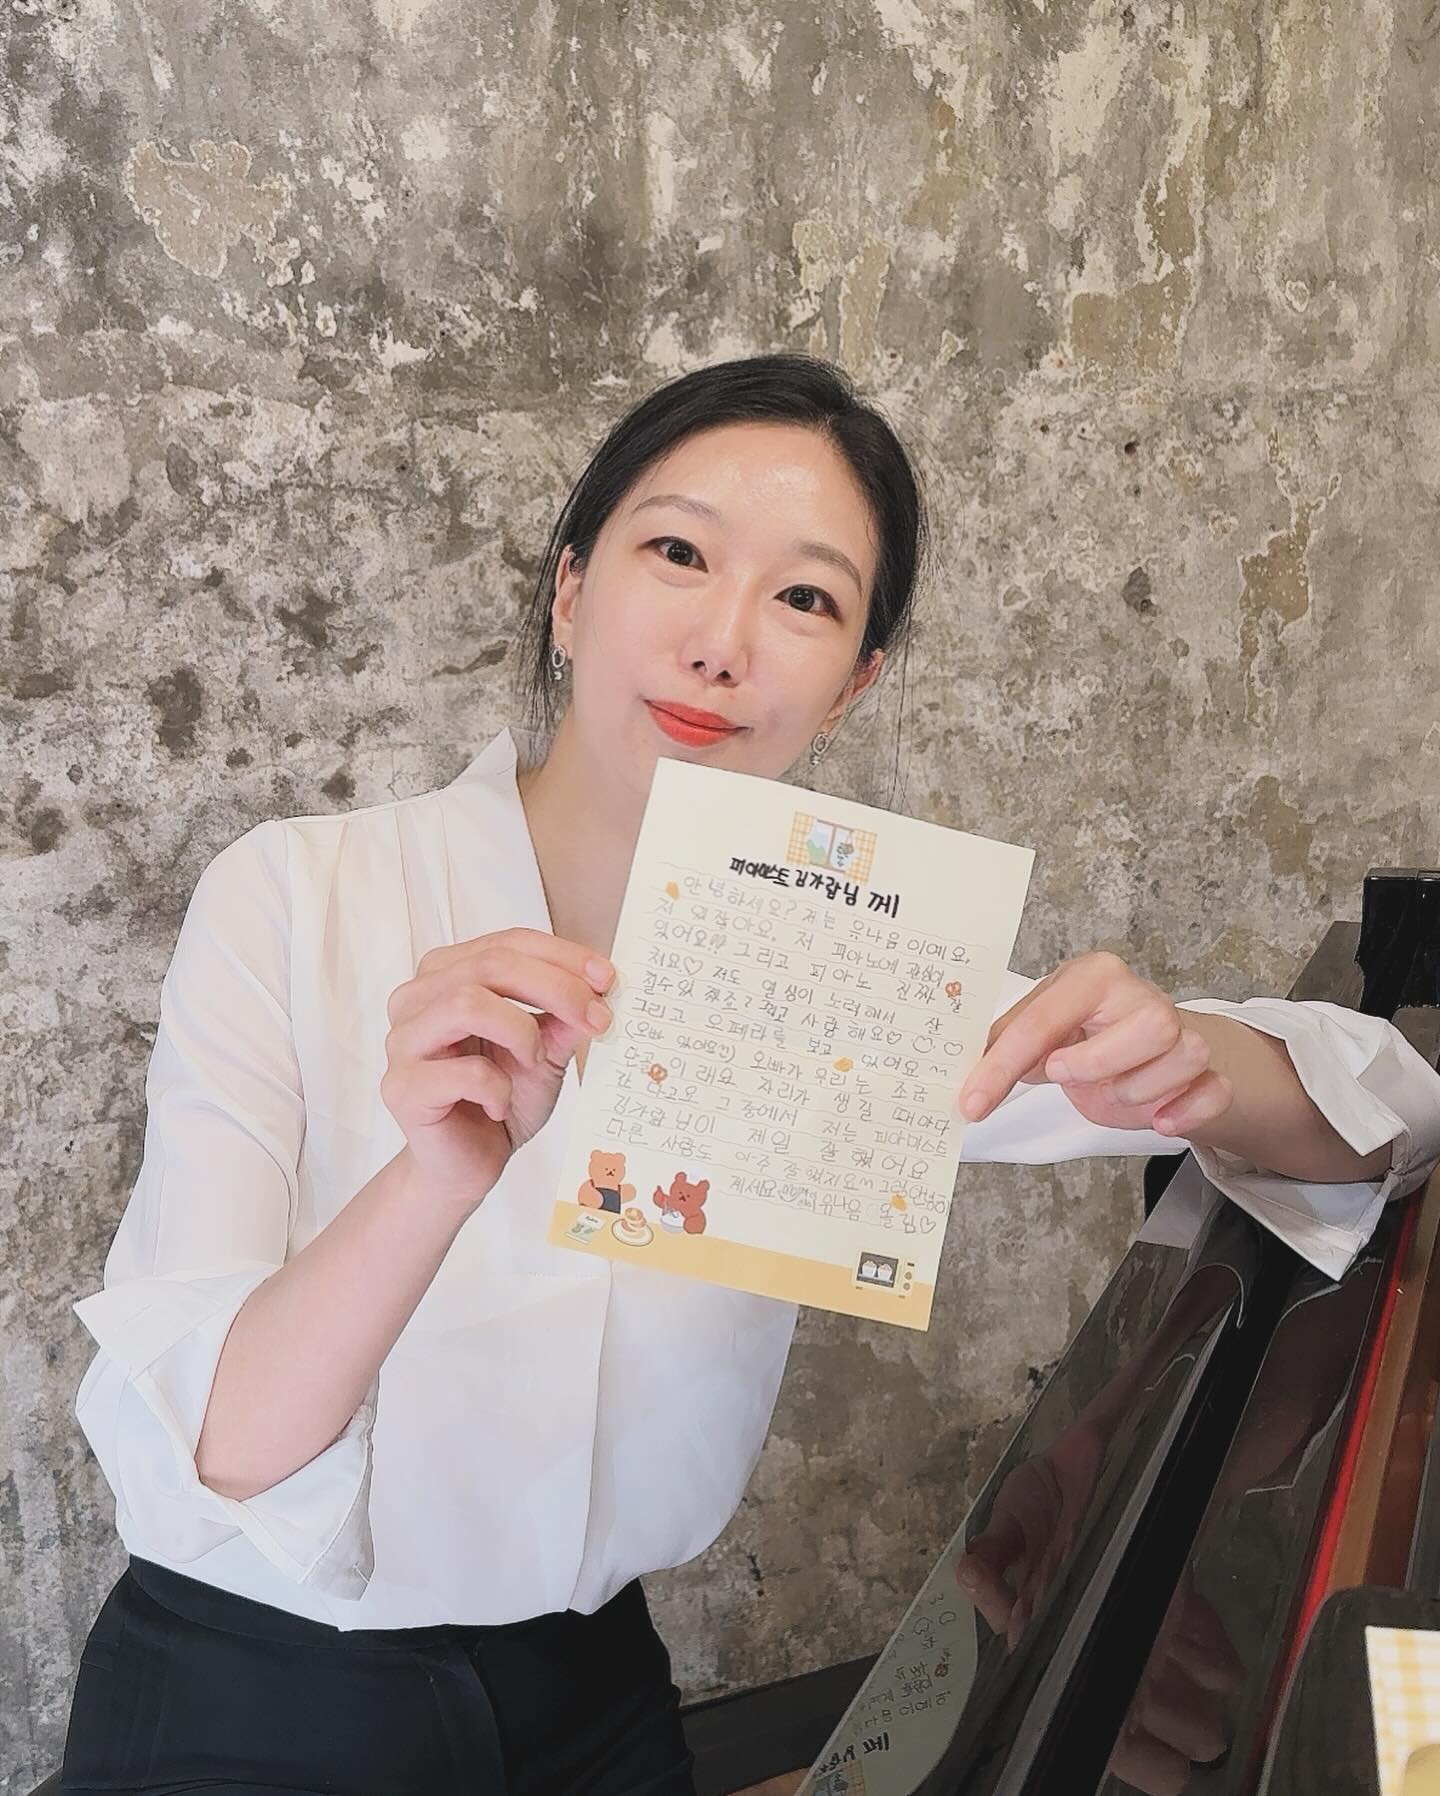 피아니스트 김가람님 께
안녕하세요? 저는 유나음이예요.
저 있잖아요. 저 피아노에 관심이
있어요!! 그리고 피아노 진짜 잘
치요♡ 저도 열심이 노력해서 잘
칠수 있겠죠? 그리고 사랑해요♡
그리고 오페라를 보고 있어요~
(오빠 있어요) 오빠가 우리는 조금
단골이래요 자리가 생길 때마다
간다고요 그 중에서 저는 피아니스트
김가람님이 제일 잘했어요
다른 사람도 아주 잘했지요~ 그럼 안녕히
계세요 유나음 올림♡